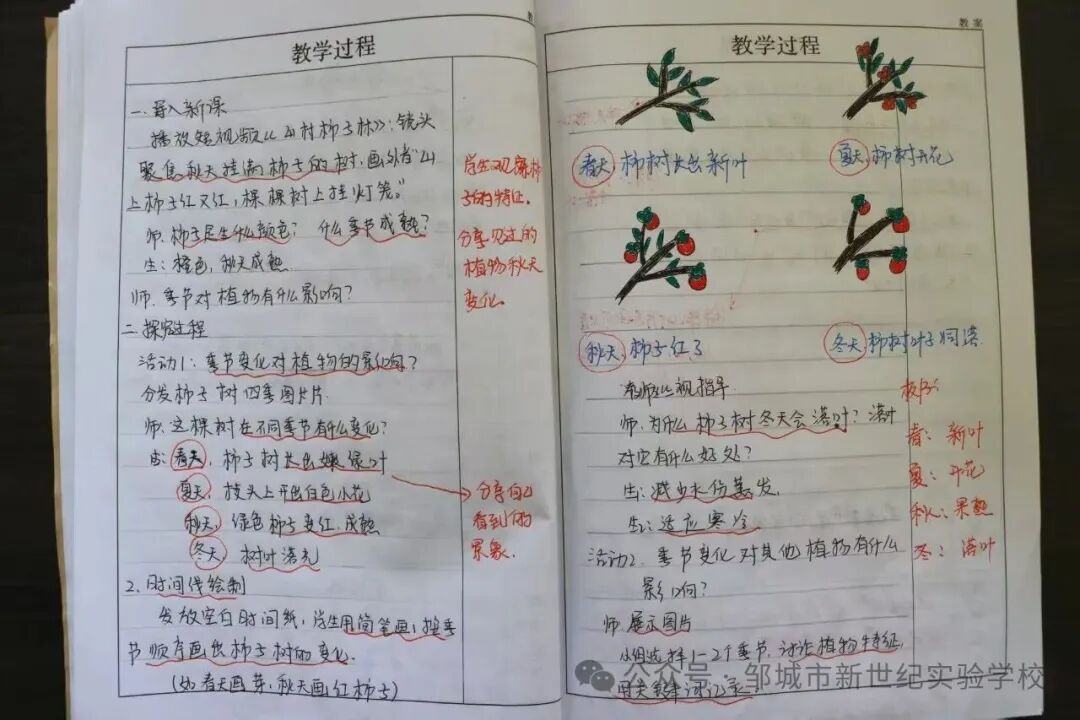 教学过程
一、导入新课
播放短视频《山村柿子林》:镜头
聚焦秋天挂满柿子的树,画外音"山
上柿子红又红,棵棵树上挂灯笼。"
师:柿子是什么颜色? 什么季节成熟?
生:橙色,秋天成熟.
师:季节对植物有什么影响?
二、探究过程
活动1:季节变化对植物的影响?
分发柿子树四季图片片.
师:这棵树在不同季节有什么变化?
生:春天,柿子树长出嫩绿叶
夏天,枝头上开出白色小花
秋天,绿色柿子变红,成熟
冬天 树叶落光
2、时间线绘制
发放空白时间纸,学生用简笔画,按季
节顺序画出柿子树的变化.
(如春天画芽,秋天画红柿子)
学生观察柿
子的特征.
分享见过的
植物秋天
变化.
分享自己
看到的
景象.
教案
教学过程
春天,柿树长出新叶
夏天,柿树开花
秋天,柿子红了
冬天,柿树叶子凋落.
教师巡视指导
师:为什么柿子树冬天会落叶?落叶
对它有什么好处?
生:减少水份蒸发.
生:适应寒冷
活动2、季节变化对其他植物有什么
影响?
师:展示图片
小组选择1-2个季节,讨论植物特征,
记录
板书:
春:新叶
夏:开花
秋:果熟
冬:落叶
公众号·邹城市新世纪实验学校